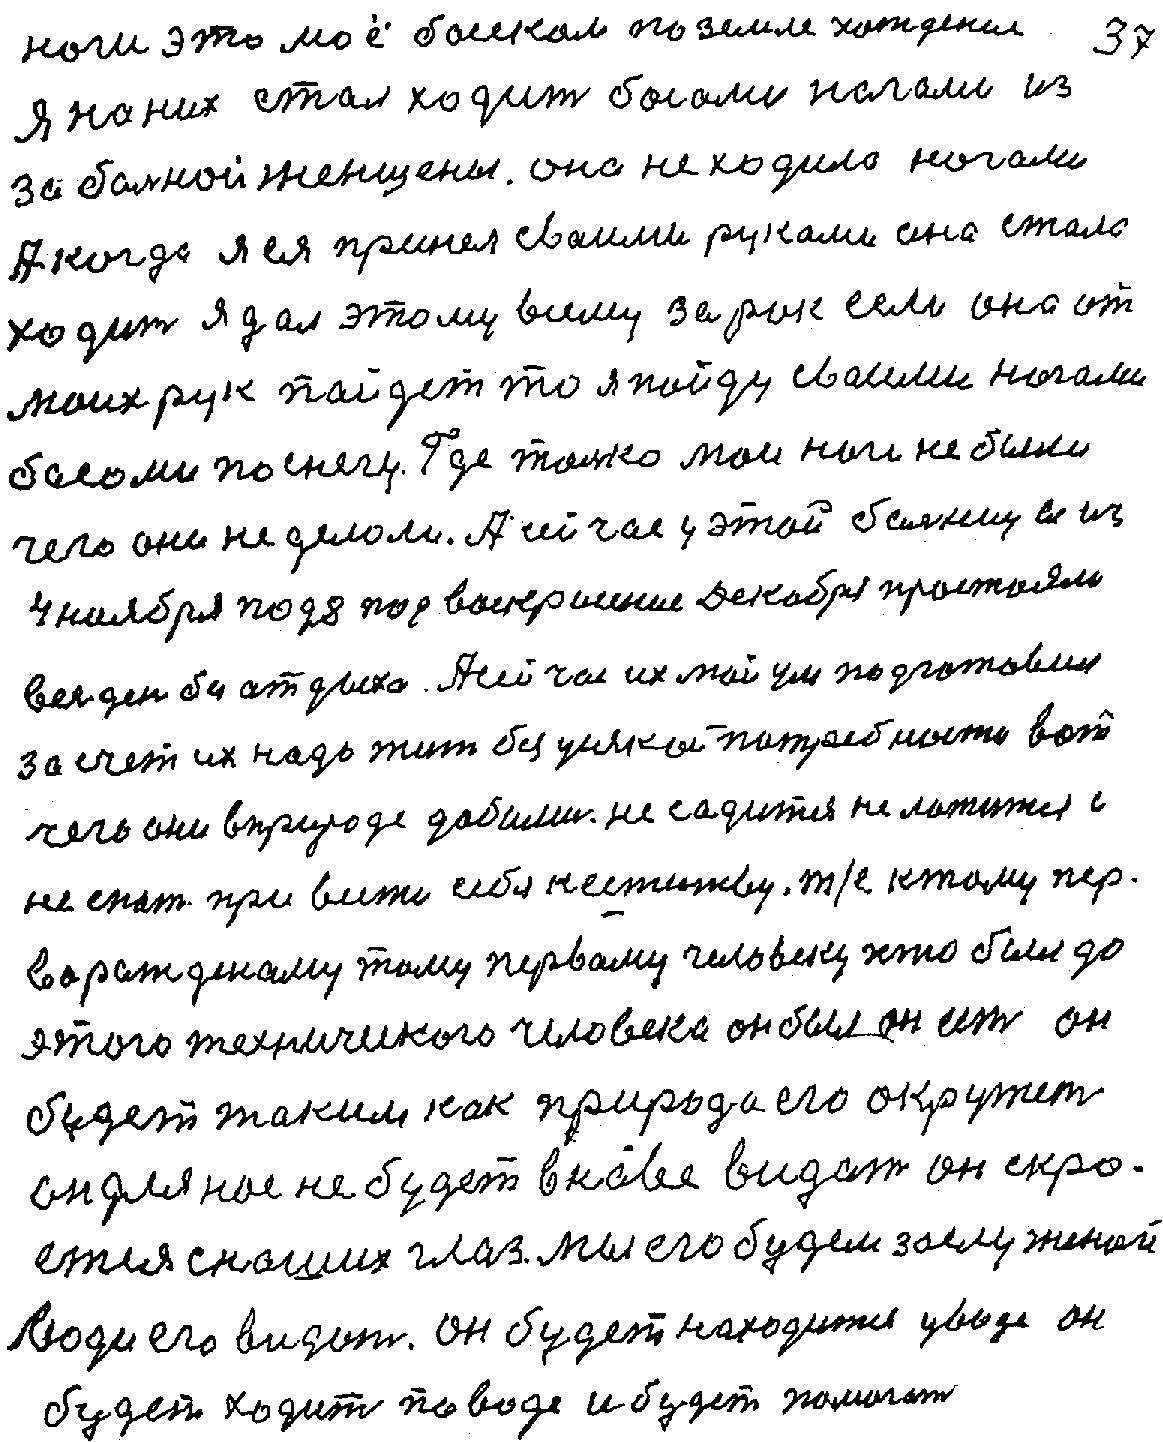 ноги это моё боском по земле хождение 37
Я на них стал ходит босами нагами из
за балной женщены. она не ходила ногами
А когда я ея принел сваими руками она стала
ходит я дал этому всему зарок если она от
моих рук пайдет то я пойду сваими ногами
босоми по снегу. Где толко мои ноги не были
чего они не делоли. А сичас у этой балнищ
4 ноября под 8 под васкрисение декабря простояла
вся ден без атдыха. А сей час их мой ум подготовил
за счет их надо жит без усякой потребности вот
чего они в природе добилис. не садится не ложится и
не спат. привести себя к естиству. т/е к тому пер.
варажденаму тому первому человеку хто был до
этого техничиского человека он был он ест он
будет таким как природа его окружет
он для нас не будет в набе видат он скро.
ется с наших глаз. мы его будем заслуженой
Люди его видат. он будет находится у воде он
будет ходит по воде и будет помогат